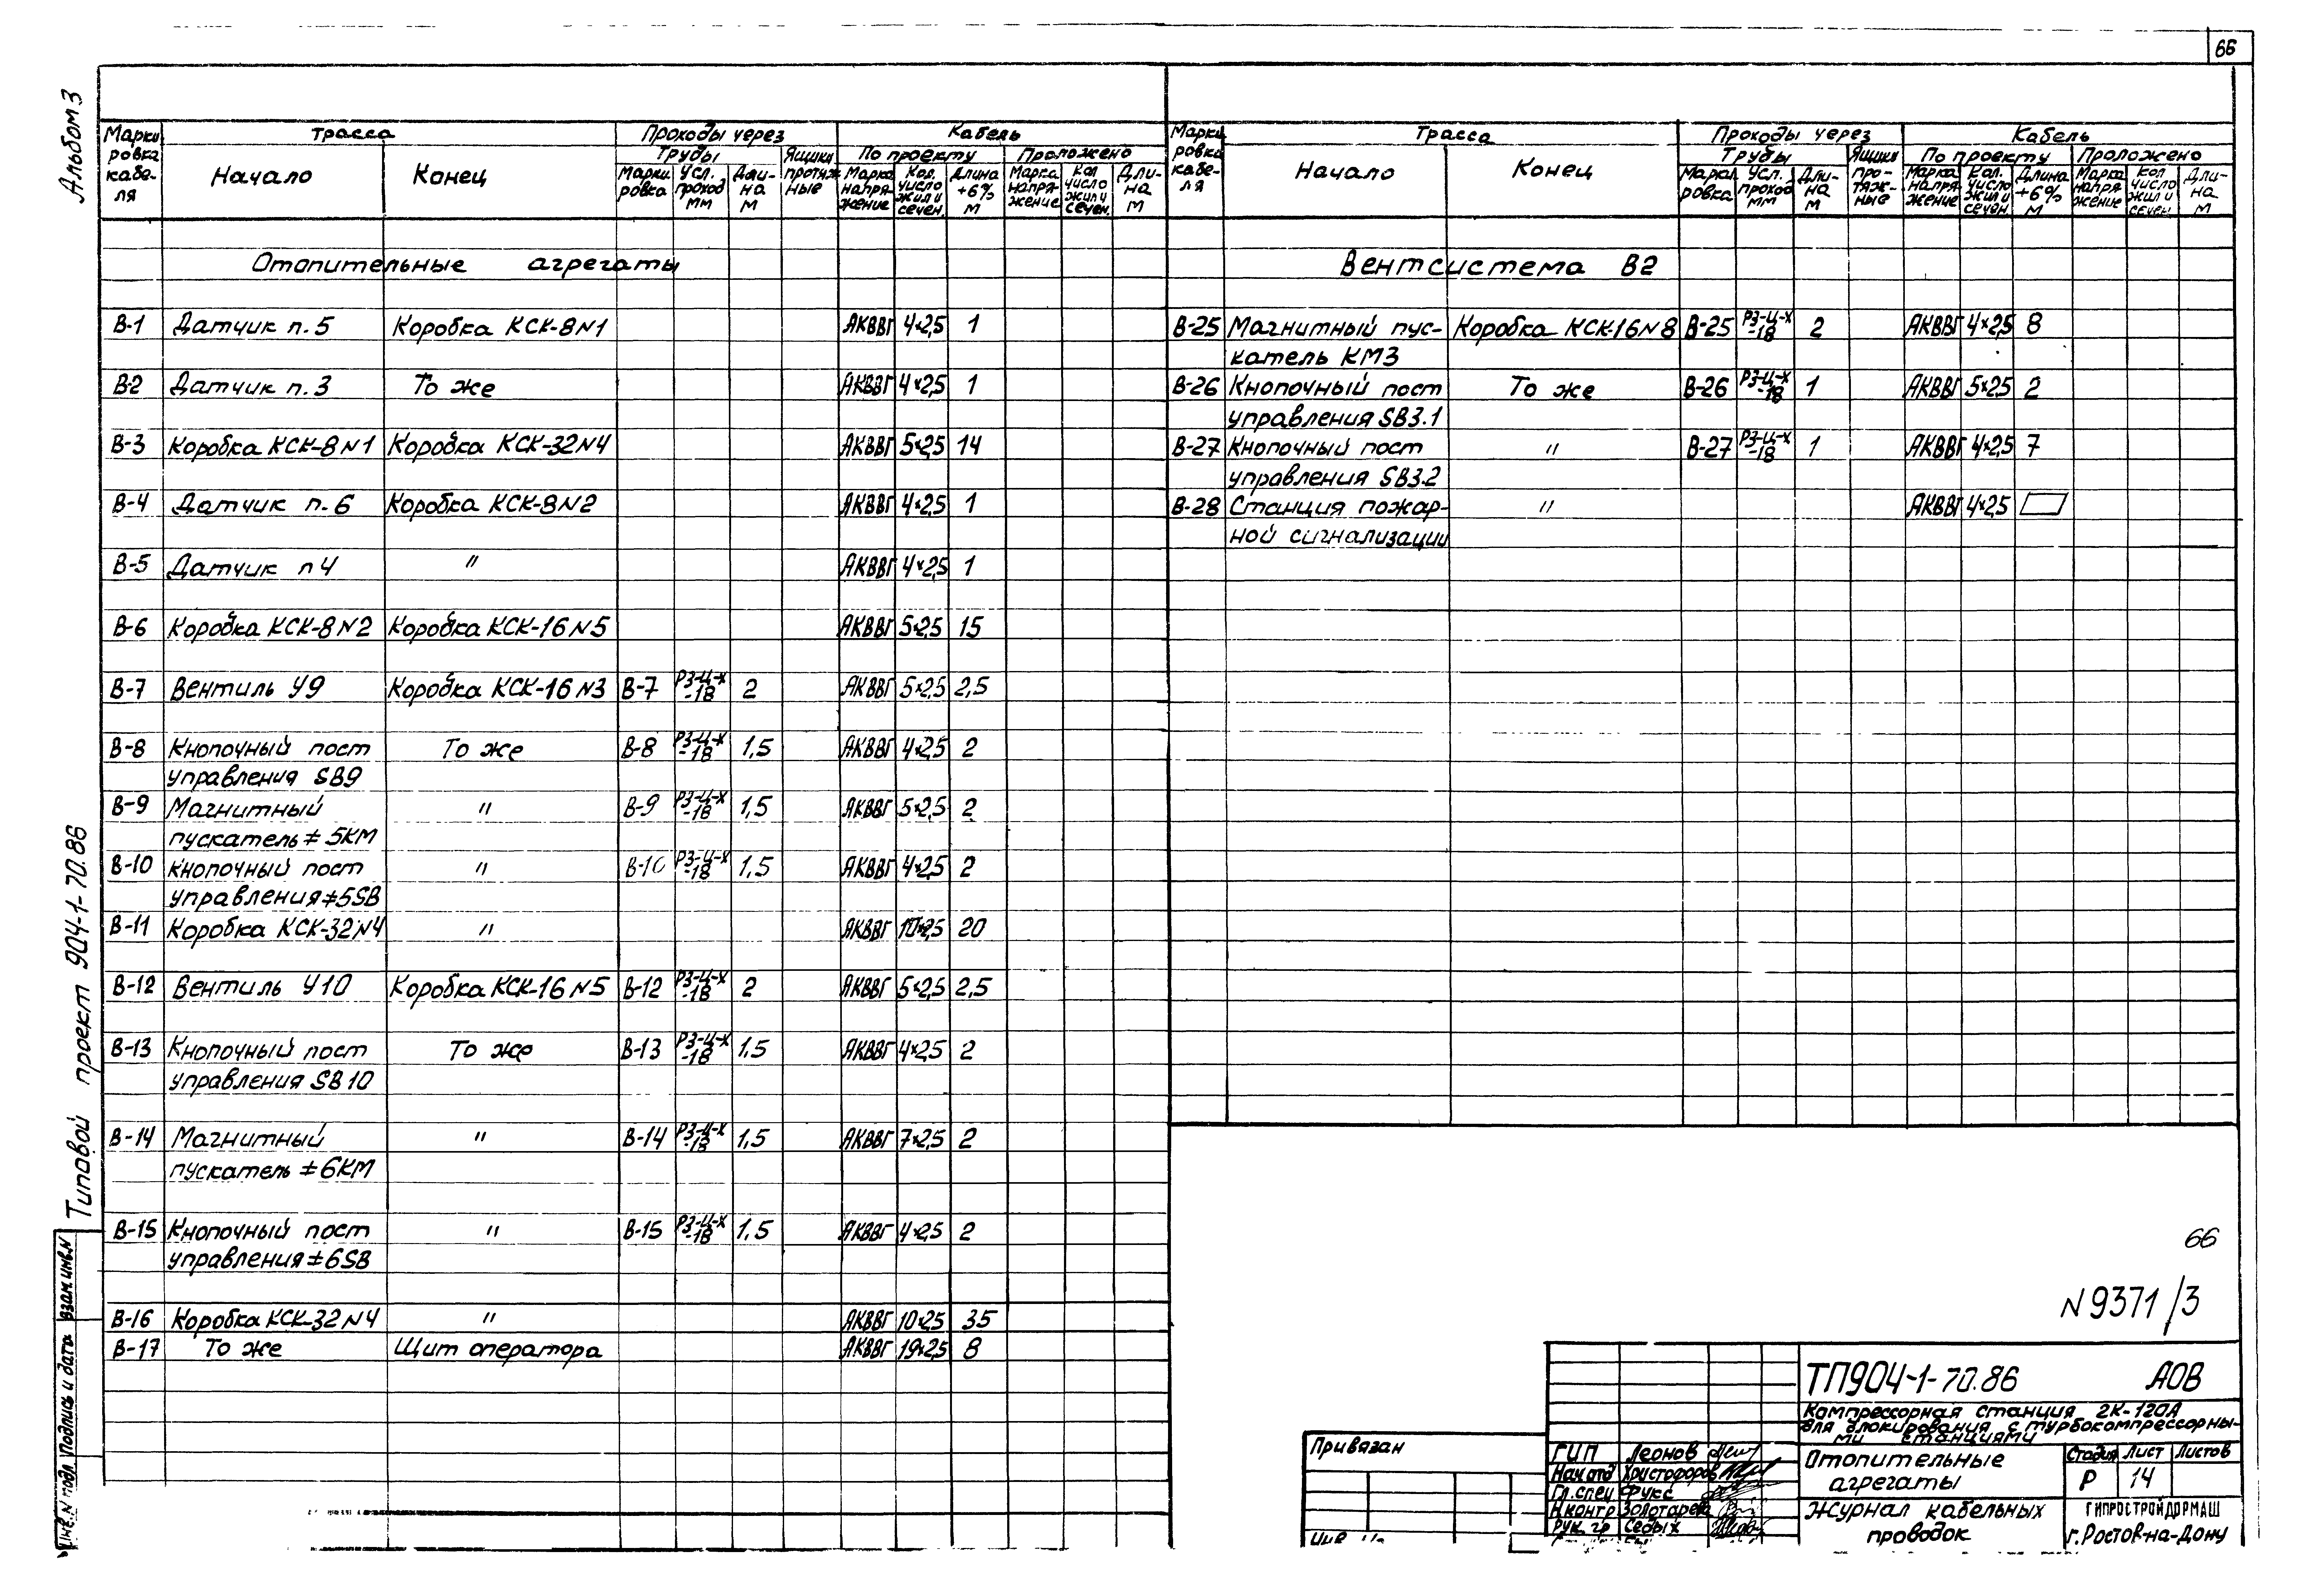 66
Альбом 3
Типовой проект 904-1-70.86
Инв.N подл. Подпись и дата Взам.инв.N
Марки ровка кабе- ля
Трасса
Начало
Конец
Проходы через
Трубы
Марки ровка
Усл. проход мм
Дли- на м
Ящики протяж ные
Кабель
По проекту
Марка напря- жение
Кол. число жил и сечен.
Длина +6% м
Проложено
Марка напря- жение
Кол число жил и сечен.
Дли- на м
Отопительные агрегаты
В-1 Датчик п.5 Коробка КСК-8N1 АКВВГ 4×2,5 1
В-2 Датчик п.3 То же АКВВГ 4×2,5 1
В-3 Коробка КСК-8N1 Коробка КСК-32N4 АКВВГ 5×2,5 14
В-4 Датчик п.6 Коробка КСК-8N2 АКВВГ 4×2,5 1
В-5 Датчик п4 " АКВВГ 4×2,5 1
В-6 Коробка КСК-8N2 Коробка КСК-16N5 АКВВГ 5×2,5 15
В-7 Вентиль У9 Коробка КСК-16N3 В-7 РЗ-Ц-Х -18 2 АКВВГ 5×2,5 2,5
В-8 Кнопочный пост То же В-8 РЗ-Ц-Х -18 1,5 АКВВГ 4×2,5 2
управления SB9
В-9 Магнитный " В-9 РЗ-Ц-Х -18 1,5 АКВВГ 5×2,5 2
пускатель ≠ 5КМ
В-10 Кнопочный пост " В-10 РЗ-Ц-Х -18 1,5 АКВВГ 4×2,5 2
управления ≠5SB
В-11 Коробка КСК-32N4 " АКВВГ 10×2,5 20
В-12 Вентиль У10 Коробка КСК-16N5 В-12 РЗ-Ц-Х -18 2 АКВВГ 5×2,5 2,5
В-13 Кнопочный пост То же В-13 РЗ-Ц-Х -18 1,5 АКВВГ 4×2,5 2
управления SB10
В-14 Магнитный " В-14 РЗ-Ц-Х -18 1,5 АКВВГ 7×2,5 2
пускатель ±6КМ
В-15 Кнопочный пост " В-15 РЗ-Ц-Х -18 1,5 АКВВГ 4×2,5 2
управления ±6SB
В-16 Коробка КСК-32N4 " АКВВГ 10×2,5 35
В-17 То же Щит оператора АКВВГ 19×2,5 8
Марки ровка кабе- ля
Трасса
Начало
Конец
Проходы через
Трубы
Марки ровка
Усл. проход мм
Дли- на м
Ящики про- тяж- ные
Кабель
По проекту
Марка напря- жение
Кол. число жил и сечен.
Длина +6% м
Проложено
Марка напря- жение
Кол число жил и сечен.
Дли- на м
Вентсистема В2
В-25 Магнитный пус- Коробка КСК-16N8 В-25 РЗ-Ц-Х -18 2 АКВВГ 4×2,5 8
катель КМ3
В-26 Кнопочный пост То же В-26 РЗ-Ц-Х -18 1 АКВВГ 5×2,5 2
управления SB3.1
В-27 Кнопочный пост " В-27 РЗ-Ц-Х -18 1 АКВВГ 4×2,5 7
управления SB3.2
В-28 Станция пожар- " АКВВГ 4×2,5
ной сигнализации
66
N 9371/3
ТП904-1-70.86 АОВ
Компрессорная станция 2К-120А
для блокирования с турбокомпрессорны-
ми станциями
Привязан
ГИП Леонов
Нач.отд Христофоров
Гл.спец Фукс
Н.контр Золотарева
Рук. гр Седых
Отопительные
агрегаты
Стадия Лист Листов
Р 14
Журнал кабельных
проводок
ГИПРОСТРОЙДОРМАШ
г.Ростов-на-Дону